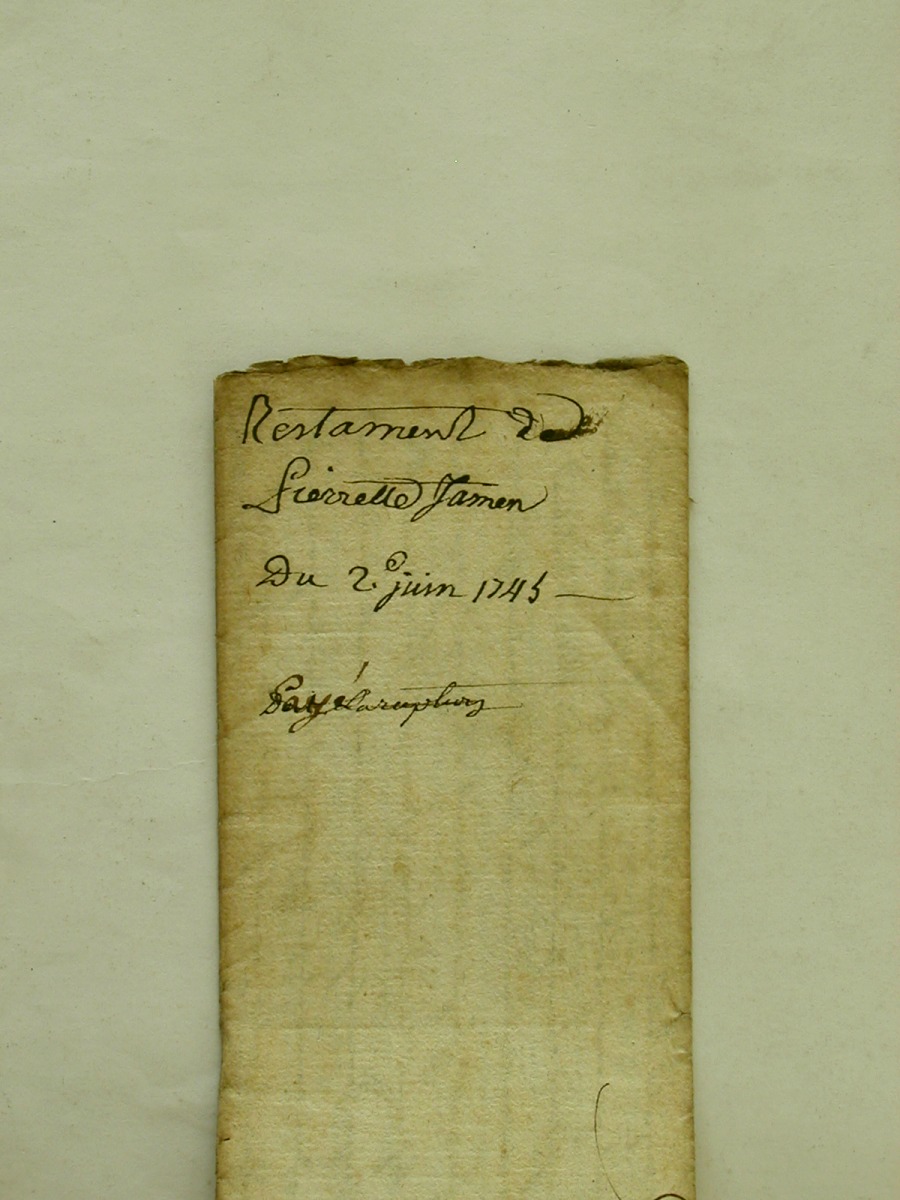 Testament de
Pierrette Jamen
Du 2.e juin 1745
Payé